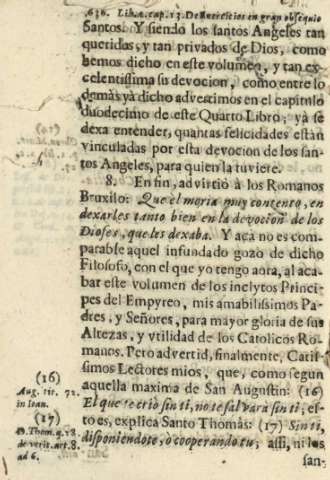 636. Lib. 4. cap. 13. De exercicios en gran obsequio
Santos. Y siendo los santos Angeles tan
queridas, y tan privados de Dios, como
hemos dicho en este volumen, y tan ex-
celentissima su devocion, como entre lo
demàs yà dicho advertimos en el capitulo
duodecimo de este Quarto Libro; yà se
dexa entender, quantas felicidades estàn
vinculadas por esta devocion de los san-
tos Angeles, para quien la tuviere.
8. En fin, advirtiò à los Romanos
Bruxilo: Que el moria muy contento, en
dexarles tanto bien en la devocion de los
Dioses, que les dexaba. Y aca no es com-
parable aquel infundado gozo de dicho
Filosofo, con el que yo tengo aora, al aca-
bar este volumen de los inclytos Princi-
pes del Empyreo, mis amabilissimos Pa-
dres, y Señores, para mayor gloria de sus
Altezas, y vtilidad de los Catolicos Ro-
manos. Pero advertid, finalmente, Caris-
simos Lectores mios, que, como segun
aquella maxima de San Augustin: (16)
El que te criò sin ti, no te salvarà sin ti, es-
to es, explica Santo Thomàs: (17) Sin ti,
disponiendote, ò cooperando tu; assi, ni los
san-
(16)
Aug. tit. 72.
in Ioan.
(17)
D. Thom. q. 28.
de verit. art. 8.
ad 6.